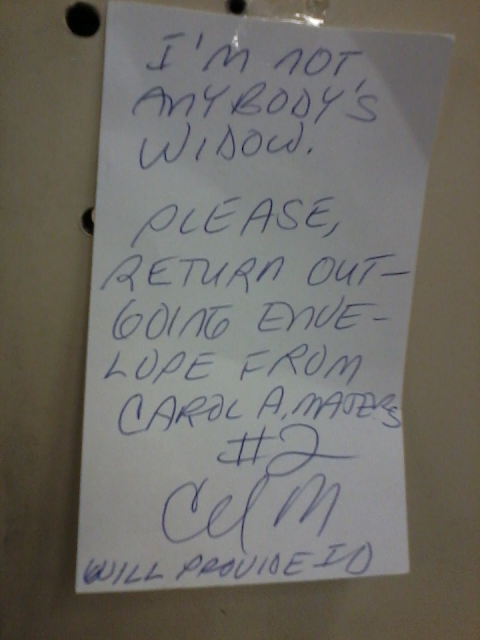 I'M NOT
ANYBODY'S
WIDOW.
PLEASE,
RETURN OUT-
GOING ENVE-
LOPE FROM
CAROL A.
#2
WILL PROVIDE ID